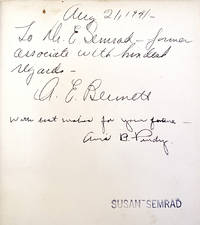 Aug 21, 1941-
To Dr. E. Semrad - former
associate with kindest
regards -
A. E. Bennett
With best wishes for your future -
B. Purdy.
SUSAN SEMRAD